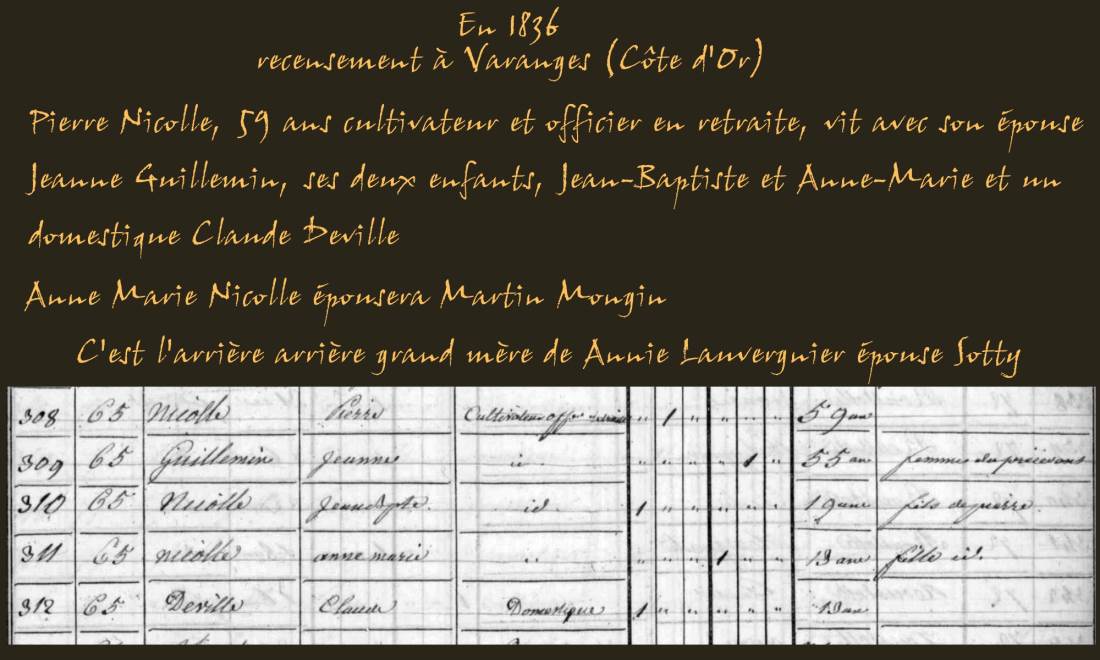 En 1836
recensement à Varanges (Côte d'Or)
Pierre Nicolle, 59 ans cultivateur et officier en retraite, vit avec son épouse
Jeanne Guillemin, ses deux enfants, Jean-Baptiste et Anne-Marie et un
domestique Claude Deville
Anne Marie Nicolle épousera Martin Mongin
C'est l'arrière arrière grand mère de Annie Lauvergnier épouse Sotty
308 65 Nicolle Pierre Cultivateur 1 59 ans
309 65 Guillemin Jeanne id 1 55 ans femme du précédent
310 65 Nicolle Jean Bpte id 1 19 ans fils de pierre
311 65 nicolle anne marie 1 13 ans fille id.
312 65 Deville Claude Domestique 1